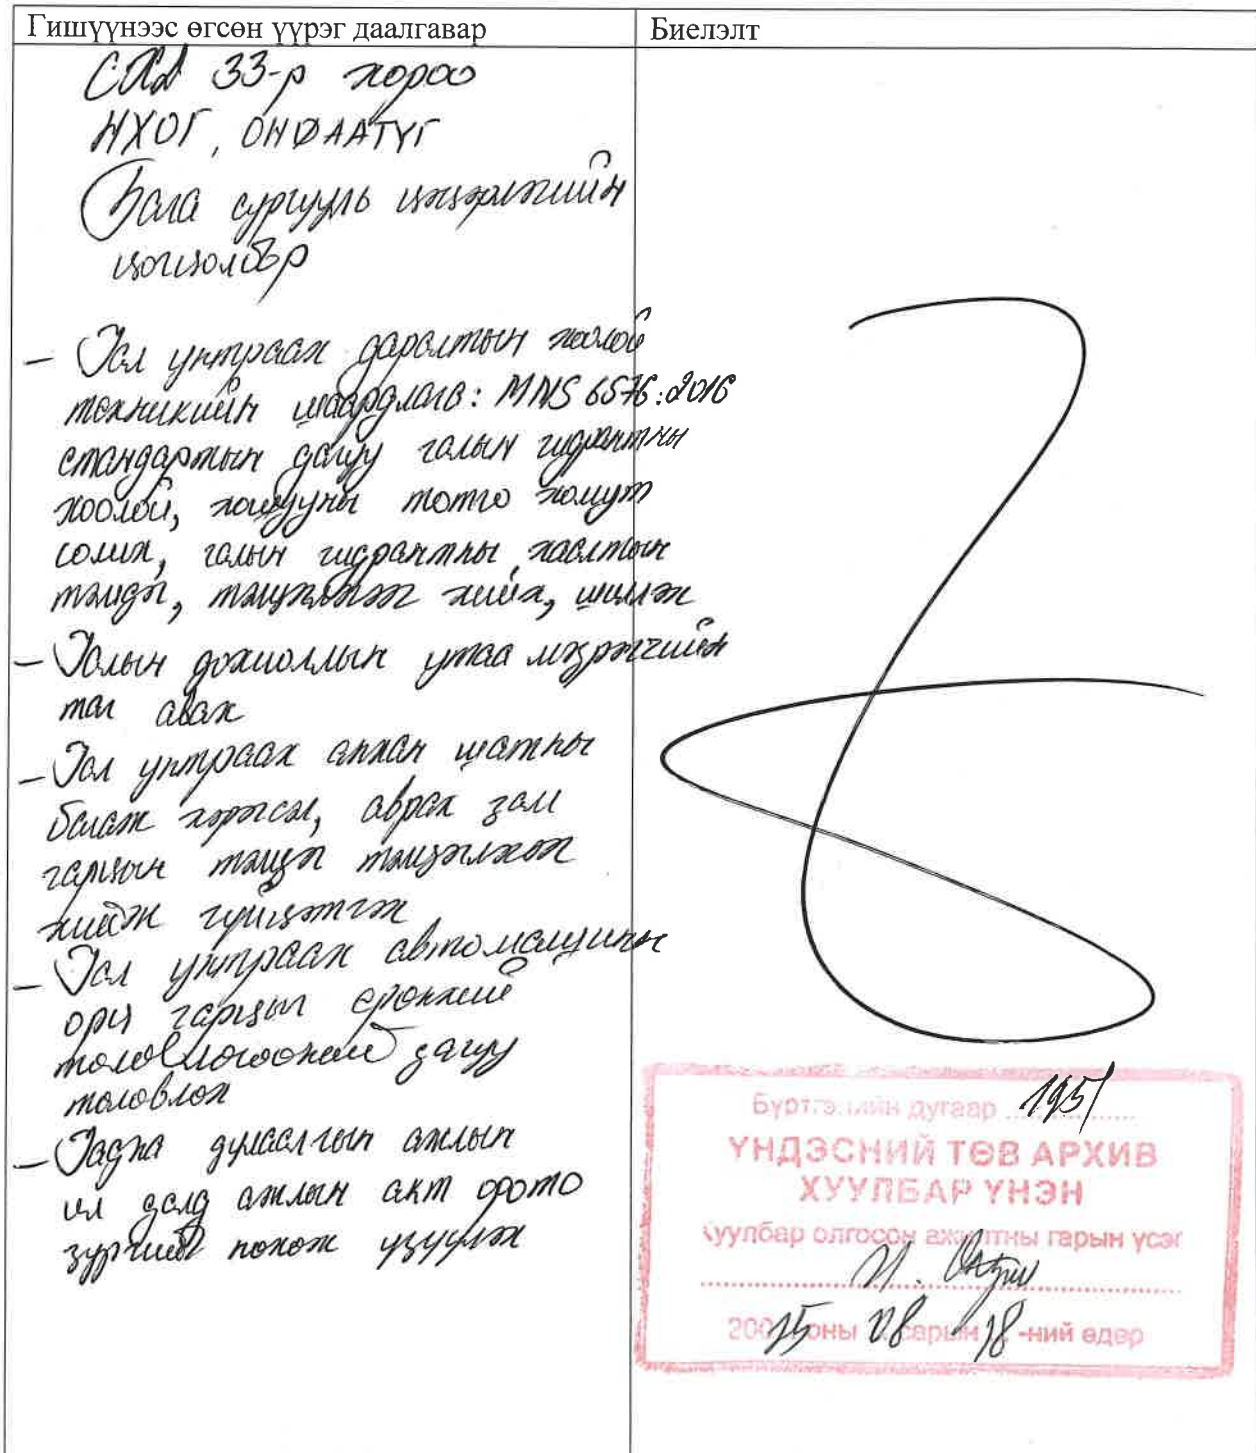 Гишүүнээс өгсөн үүрэг даалгавар
Биелэлт
СХД 33-р хороо
НХОГ, ОНӨААТҮГ
Бага сургууль цэцэрлэгийн
цогцолбор
- Гал унтраах даралтын хоолой
техникийн шаардлага: MNS 6576:2016
стандартын дагуу галын гидрантны
хоолой, хошууны тотго хомут
солих, галын гидрантны хаалтын
тэмдэг, тэмдэглэгээ хийх, шилэн
- Галын дохиоллын утаа мэдрэгчийн
таг авах
- Гал унтраах анхан шатны
багаж хэрэгсэл, аврах зам
гарцын тэмдэг тэмдэглэгээ
хийж гүйцэтгэх
- Гал унтраах автомашины
орц гарцыг ерөнхий
төлөвлөгөөний дагуу
төлөвлөх
- Гадна дулаалгын ажлын
ил далд ажлын акт фото
зургийг нөхөж үзүүлэх
Бүртгэлийн дугаар 1951
ҮНДЭСНИЙ ТӨВ АРХИВ
ХУУЛБАР ҮНЭН
Хуулбар олгосон ажилтны гарын үсэг
2025 оны 08 сарын 18-ний өдөр